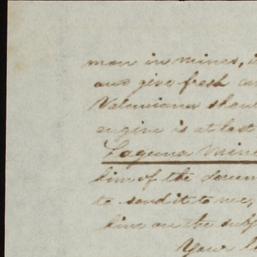 man in mines, i
and give fresh ca
Valenciana shou
engine is at last
Laguna Mine
him of the docum
to send it to me,
him on the subj
Your l